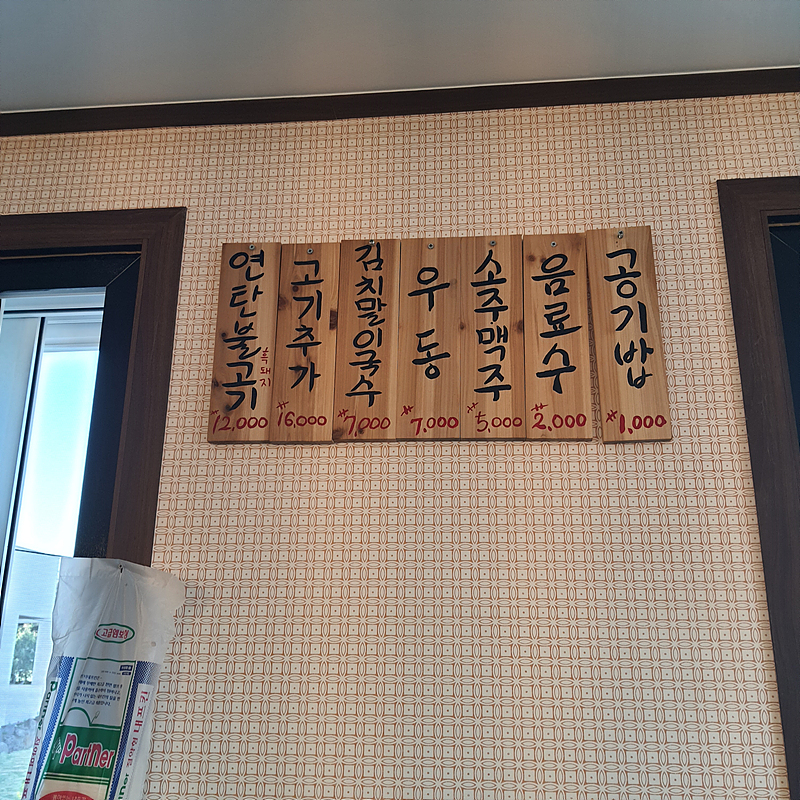 연탄불고기
흑돼지
₩12,000
고기추가
₩16,000
김치말이국수
₩7,000
우동
₩7,000
소주맥주
₩5,000
음료수
₩2,000
공기밥
₩1,000
고급앞보정
Partner
냅킨